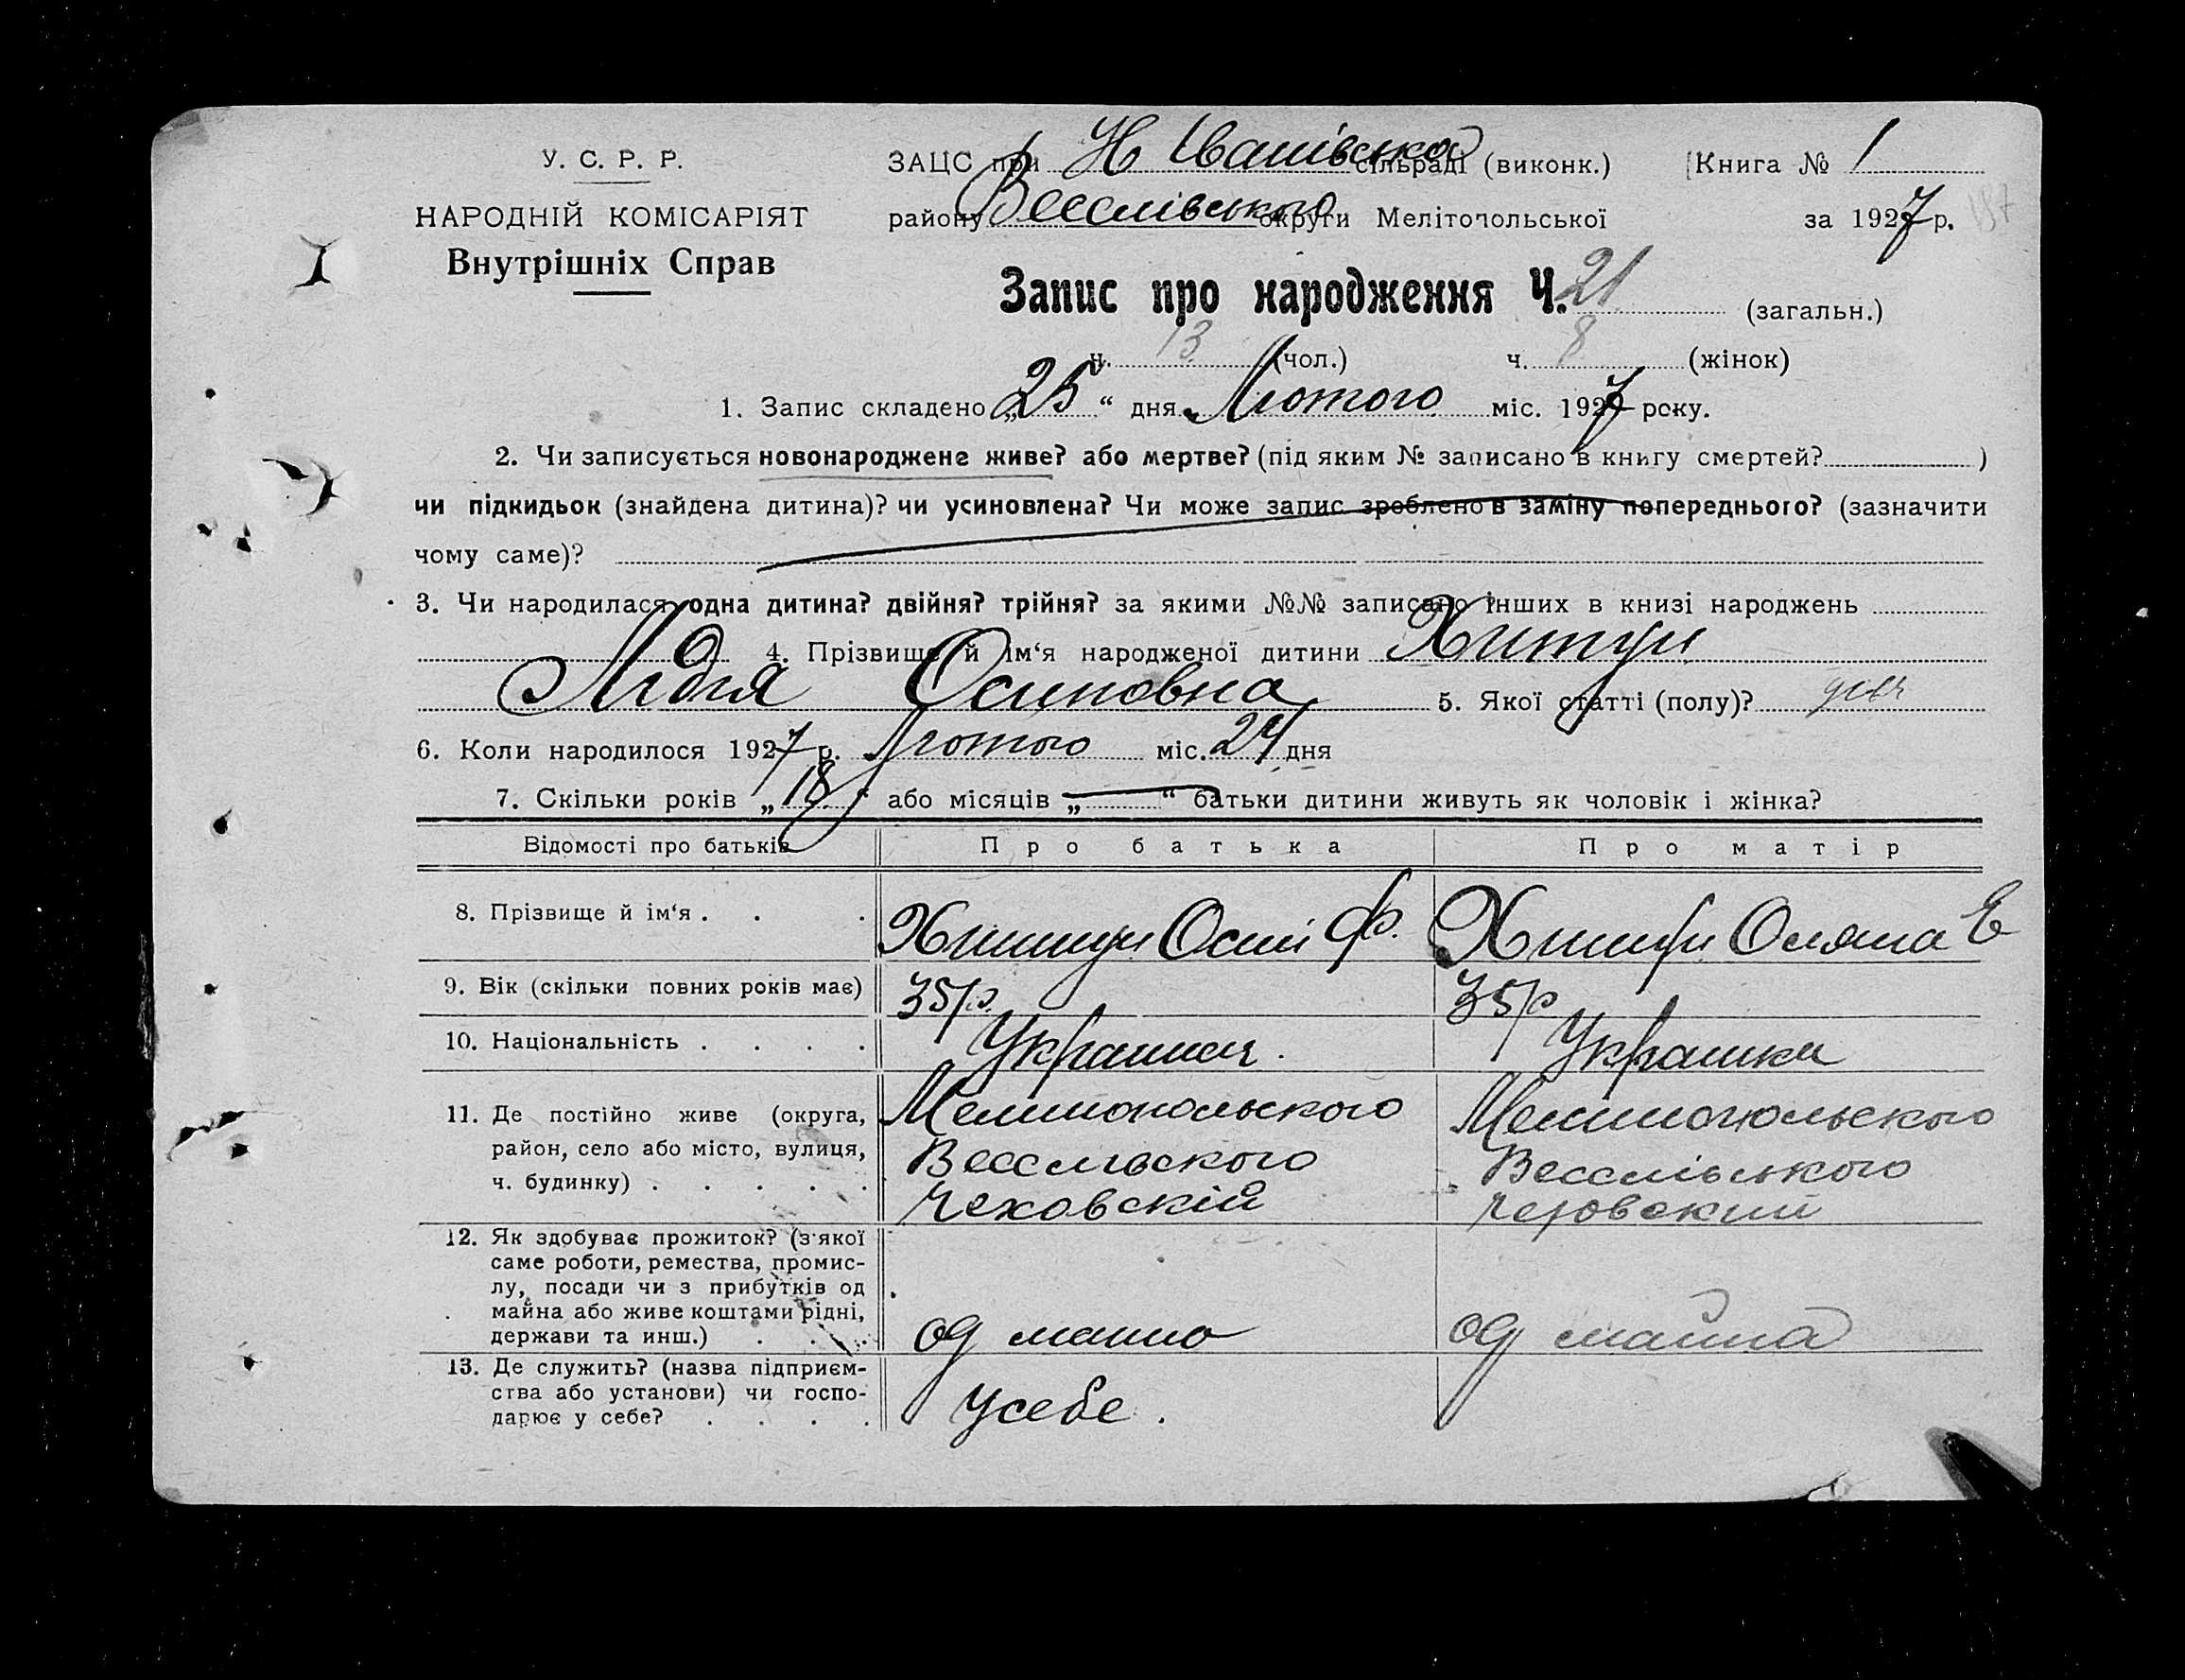 У. С. Р. Р.
НАРОДНІЙ КОМІСАРІЯТ
Внутрішніх Справ
ЗАЦС при Н Іванівської сільраді (виконк.) Книга № 1
району Веселівського округи Мелітопольської за 1927 р.
Запис про народження Ч. 21 (загальн.)
ч. 13 (чол.) ч. 8 (жінок)
1. Запис складено „25“ дня Лютого міс. 1927 року.
2. Чи записується новонароджене живе? або мертве? (під яким № записано в книгу смертей? )
чи підкидьок (знайдена дитина)? чи усиновлена? Чи може запис зроблено в заміну попереднього? (зазначити
чому саме)?
3. Чи народилася одна дитина? двійня? трійня? за якими №№ записано інших в книзі народжень
4. Прізвище й ім‘я народженої дитини
Лідія Осиповна 5. Якої статті (полу)?
6. Коли народилося 1927 р. Лютого міс. 24 дня
7. Скільки років „18“ або місяців „ “ батьки дитини живуть як чоловік і жінка?
Відомості про батьків Про батька Про матір
8. Прізвище й ім‘я . . . Осип Ф. Е
9. Вік (скільки повних років має) 35 р. 35 р
10. Національність . . . . Українец. Українка
11. Де постійно живе (округа, Мелитопольского Мелитопольского
район, село або місто, вулиця, Веселівского Веселівського
ч. будинку) . . . . . Чеховскій Чеховский
12. Як здобуває прожиток? (з якої
саме роботи, ремества, промис-
лу, посади чи з прибутків од
майна або живе коштами рідні,
держави та инш.) . . . од майно од майна
13. Де служить? (назва підприєм-
ства або установи) чи госпо-
дарює у себе? . . . . Усебе.